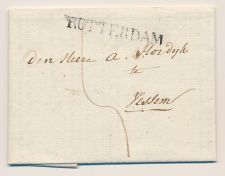 ROTTERDAM
den Heere A. Slordyk
te
Vessem